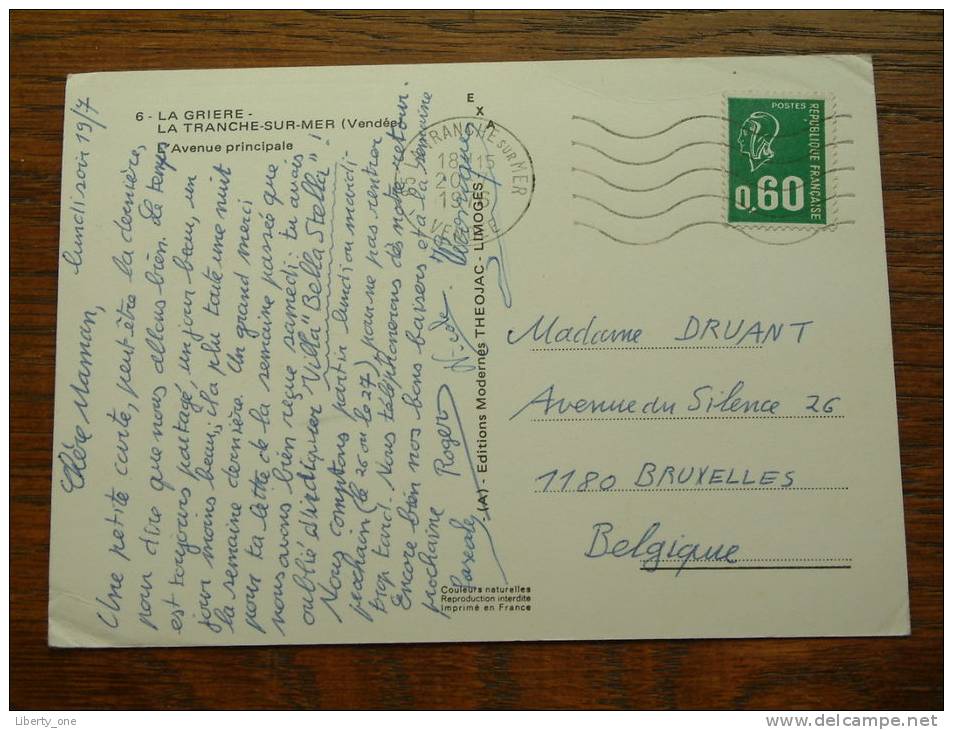 6 - LA GRIERE -
LA TRANCHE-SUR-MER (Vendée)
L'Avenue principale
lundi soir 19/7
Chère Maman,
Une petite carte, peut-être la dernière,
pour dire que nous allons bien. Le temps
est toujours partagé, un jour beau, un
jour moins beau; il a plu toute une nuit
la semaine dernière. Un grand merci
pour ta lettre de la semaine passée que
nous avons bien reçue samedi: tu avais
oublié d'indiquer Villa "Bella Stella"!
Nous comptons partir lundi ou mardi
prochain (le 26 ou le 27) pour ne pas rentrer
trop tard. Nous téléphonerons dès notre retour.
Encore bien nos bons baisers et à la semaine
prochaine Roger Nicole Véronique
Pascale
E
X A
(A) - Editions Modernes THEOJAC - LIMOGES
Couleurs naturelles
Reproduction interdite
Imprimé en France
TRANCHE SUR MER
18 H 15
POSTES
RÉPUBLIQUE FRANÇAISE
0,60
Madame DRUANT
Avenue du Silence 26
1180 BRUXELLES
Belgique
Liberty_one
delcampe.net